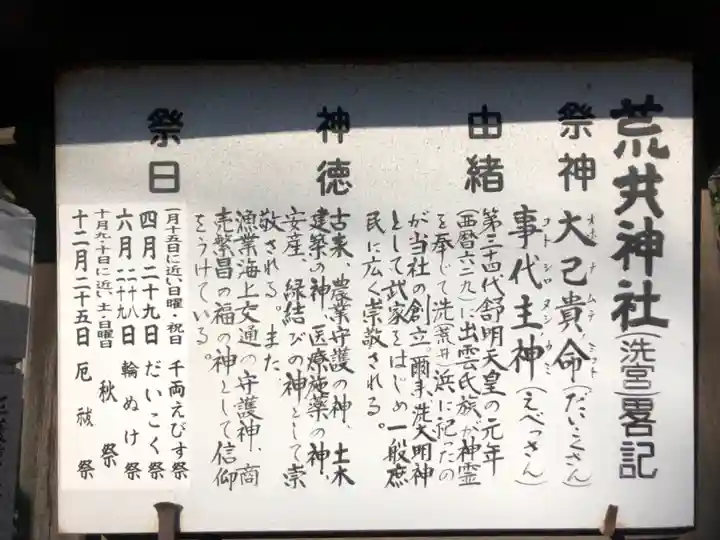 荒井神社(洗宮)畧記
祭神 大己貴命(だいこくさん)
オホナムチノミコト
事代主神(えべっさん)
コトシロヌシノカミ
由緒
第三十四代舒明天皇の元年
(西暦六二九)に出雲氏族が神霊
を奉じて洗(荒井)浜に祀ったの
が当社の創立。爾来、洗大明神
として武家をはじめ一般庶
民に広く崇敬される。
神徳
古来 農業守護の神、土木
建築の神、医療施薬の神、
安産、縁結びの神として崇
敬される。また
漁業海上交通の守護神、商
売繁昌の福の神として信仰
をうけている。
祭日
一月十五日に近い日曜・祝日 千両えびす祭
四月二十九日 だいこく祭
六月二十八 二十九日 輪ぬけ祭
十月九・十日に近い土・日曜日 秋祭
十二月二十五日 厄祓祭